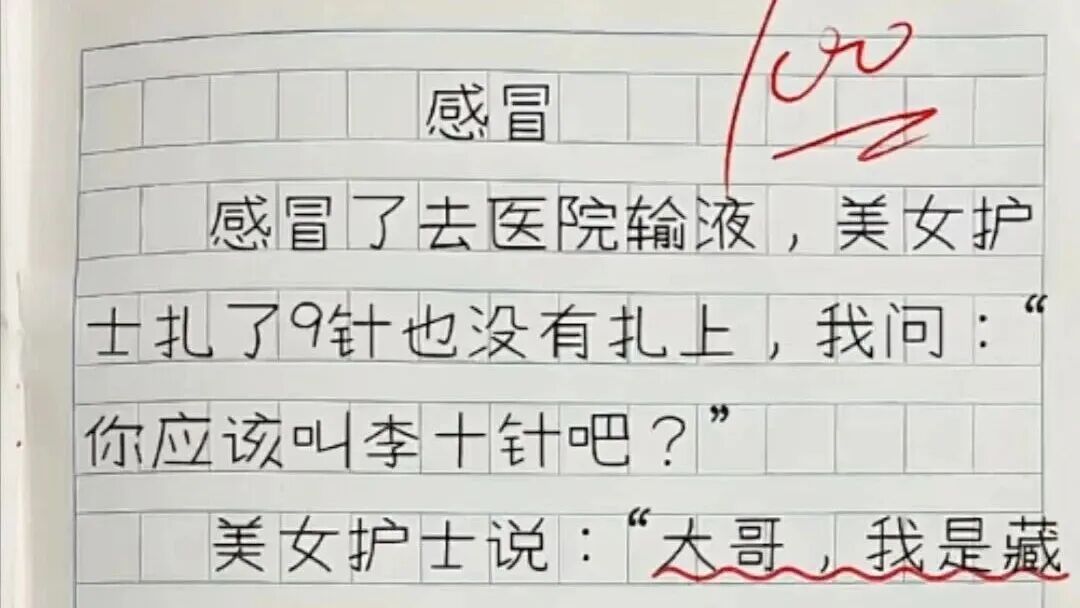 100
感冒
感冒了去医院输液，美女护
士扎了9针也没有扎上，我问：“
你应该叫李十针吧？”
美女护士说：“大哥，我是藏